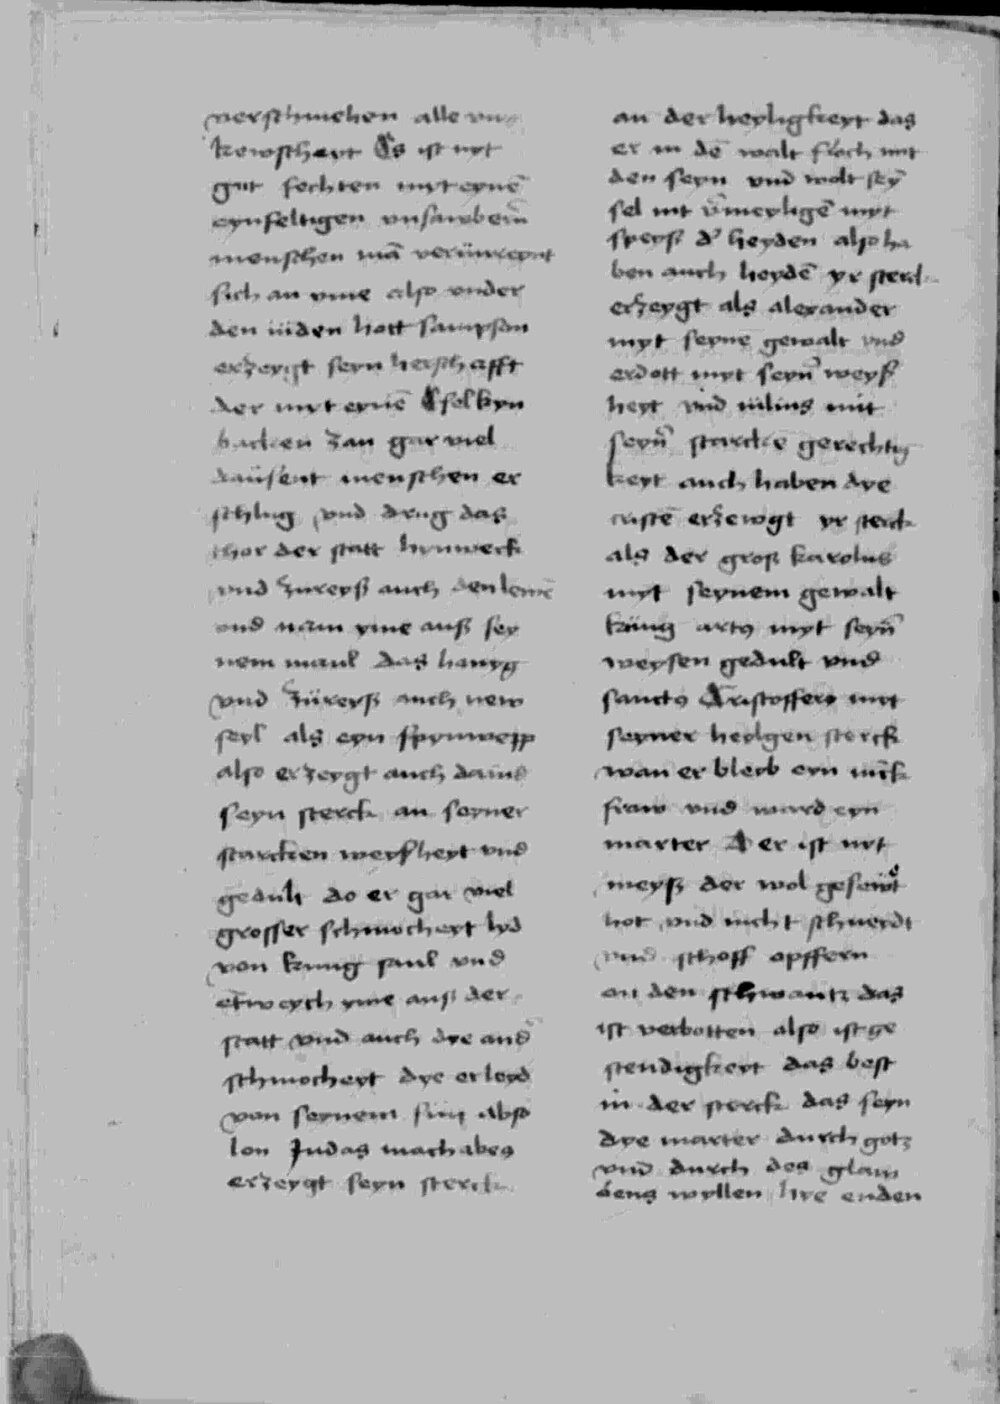 verschmehen alle vn
kewscheyt Es ist nyt
gut fechten myt eynē
eynfeltigen vnsawbern̄
menschen mā verünreynt
sich an yme also vnder
den iüden hott sampson
erzeygt seyn herschafft
der myt eynē Esel kyn
backen zan gar viel
daüsent menschen er
schlug vnd drug das
thor der statt hynweck
vnd zureyß auch den lewē
vnd nam yme auß sey
nem maul das honyg
vnd züreyß auch new
seyl als eyn spynwepp
also erzeygt auch dauid
seyn sterck an seyner
starcken weyßheyt vnd
gedult do er gar viel
grosser schmocheyt lyd
von kung saul vnd
etweych yme auß der
statt vnd auch dye and̄
schmocheyt dye er leyd
von seynem sun abso
lon Judas machabeg
erzeygt seyn sterck
an der heyligkeyt das
er in dē walt floch mit
den seyn vnd wolt seȳ
sel nit v̄meyligē myt
speyß d̓ heyden also ha
ben auch heydē yr sterck
erzeygt als alexander
myt seynē gewalt vnd
erdott myt seyn̄ weyß
heyt vnd iulius mit
seyn̄ starckē gerechtig
keyt auch haben dye
cristē erzewgt yr sterck
als der groß karolus
myt seynem gewalt
küng artꝰ myt seyn̄
weysen gedult vnd
sanctꝰ Cristofferꝰ myt
seyner heylgen sterck
wan er bleyb eyn iūck
fraw vnd ward eyn
marter Der ist nyt
meyß der wol gesewt
hot vnd nicht schneydt
vnd schoff opffern
on den schwantz das
ist verbotten also ist ge
stendigkeyt das best
in der sterck das seyn
dye marter durch gotz
vnd durch des glaw
bens wyllen hye enden